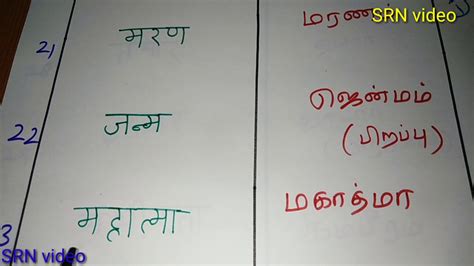 SRN video
21 मरण மரணம்
22 जन्म ஜென்மம்
(பிறப்பு)
3 महात्मा மகாத்மா
SRN video